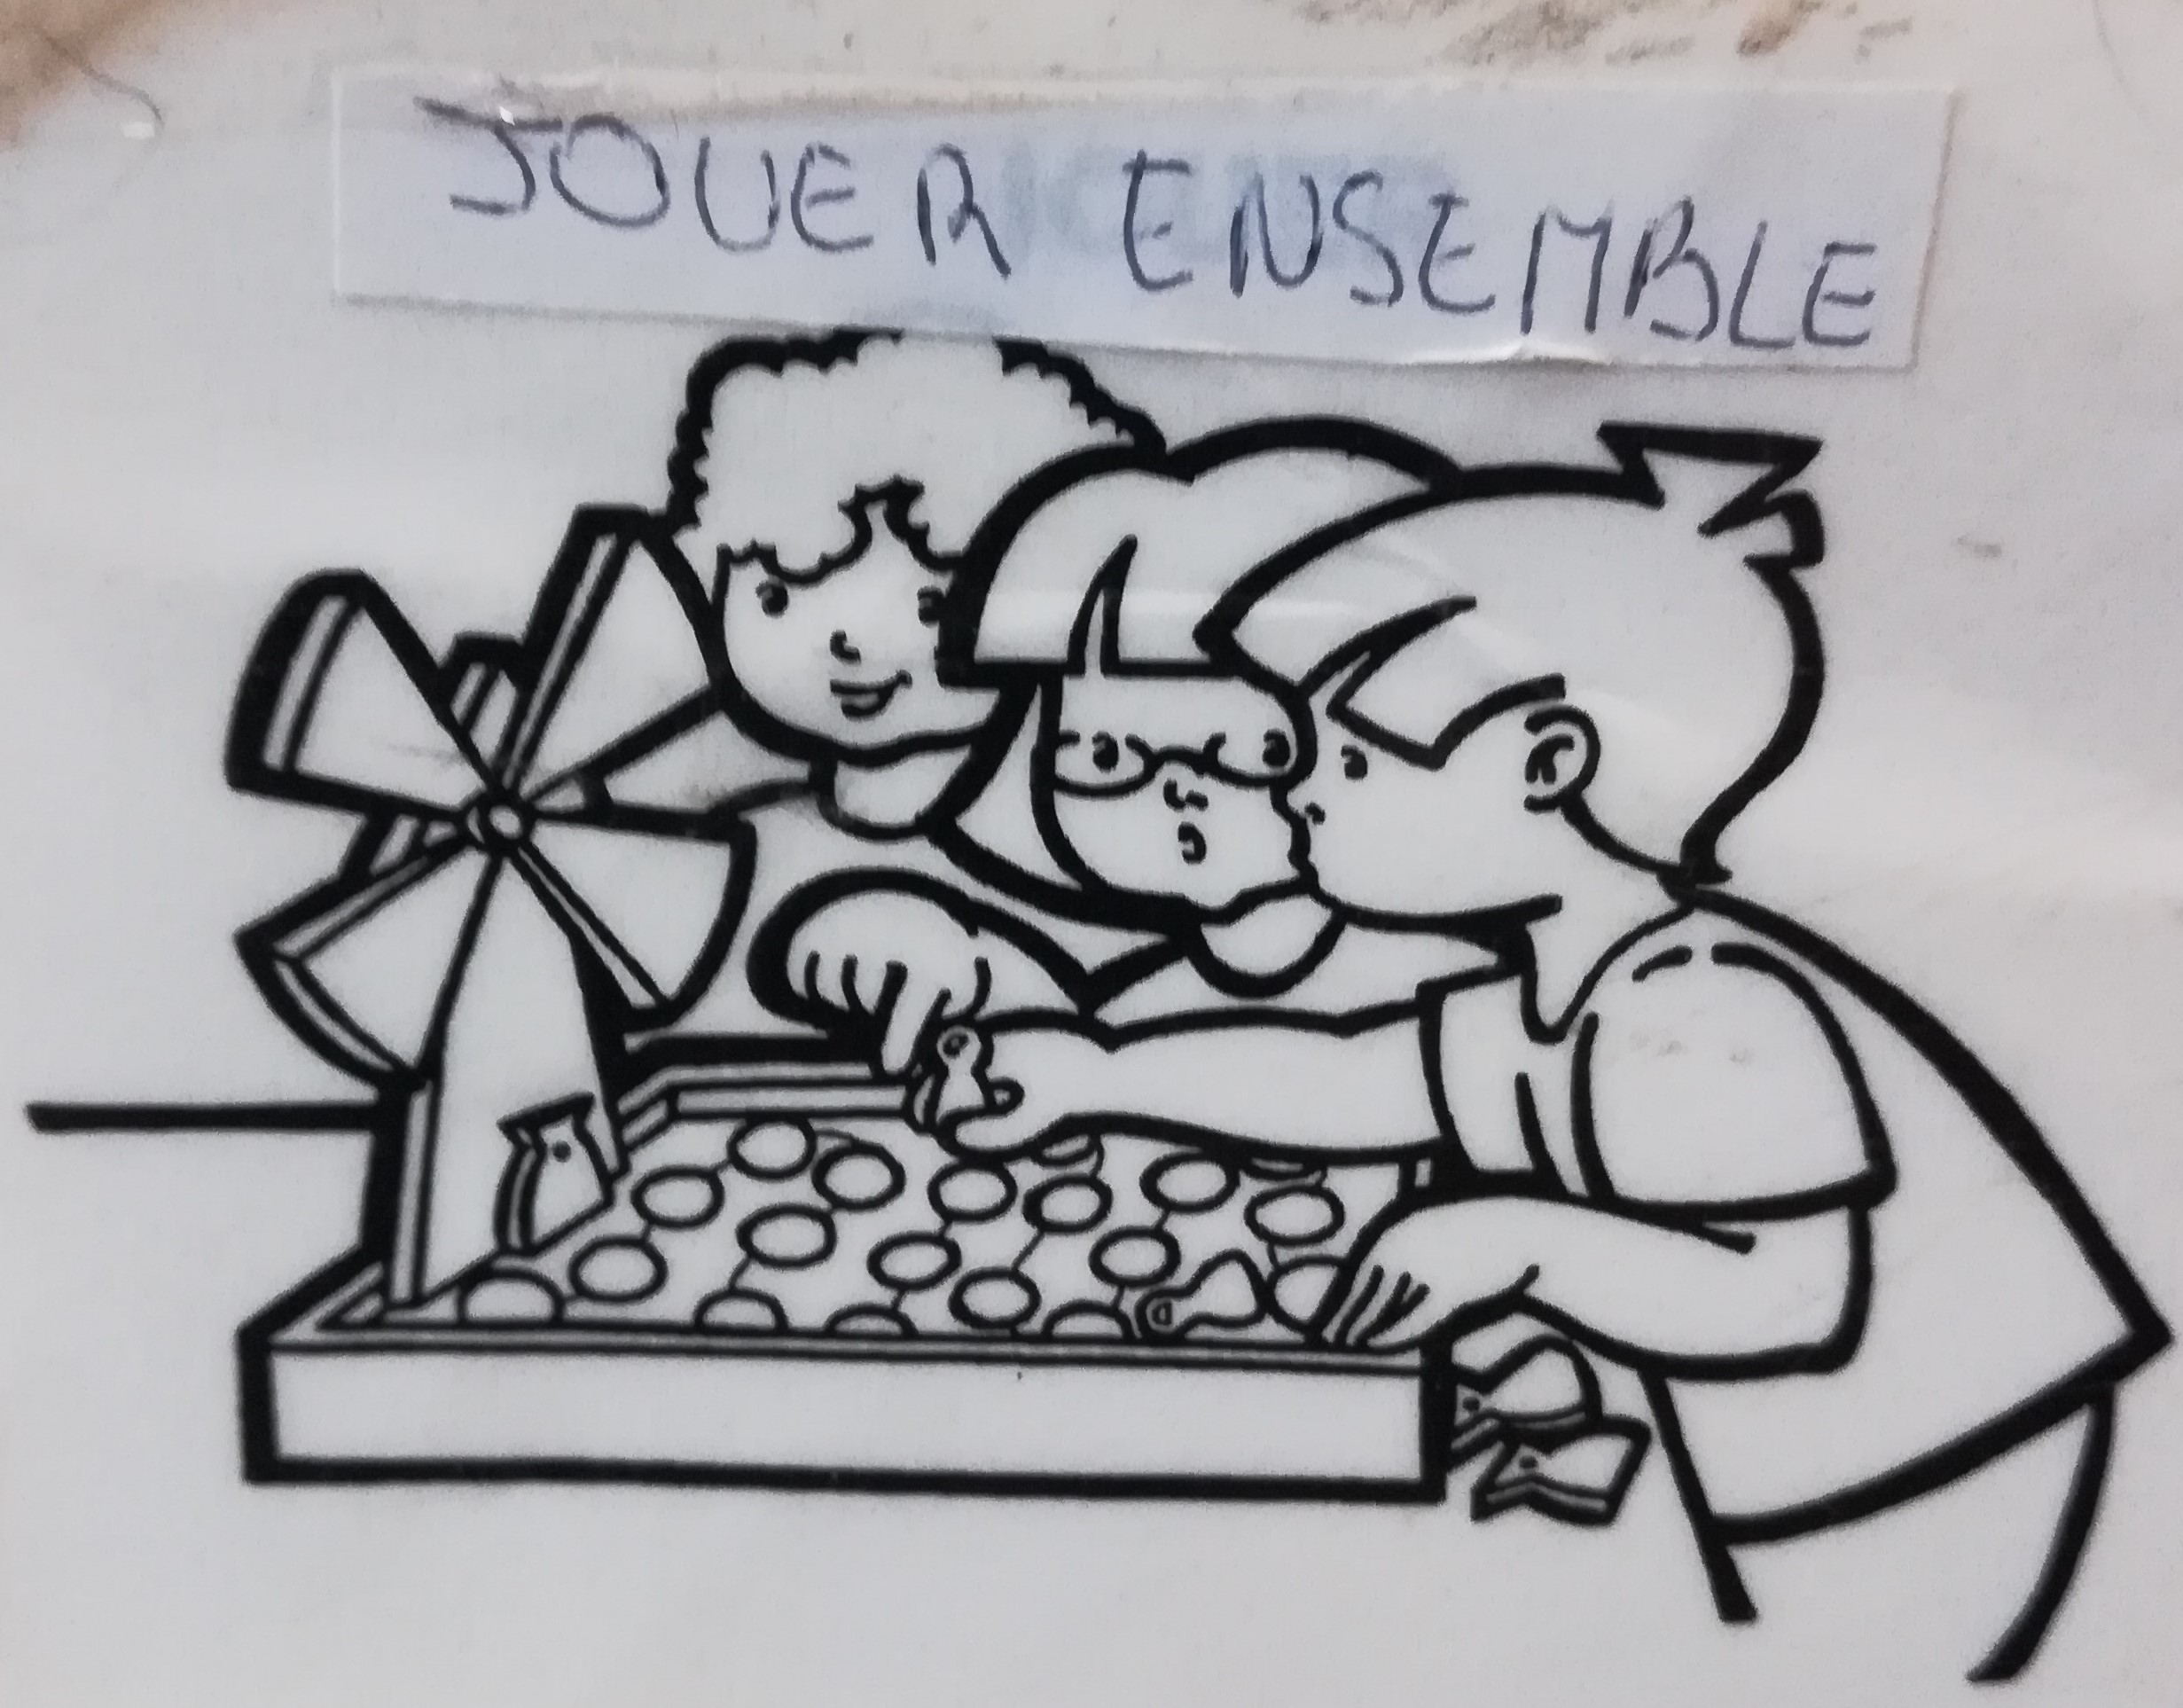 JOUER ENSEMBLE